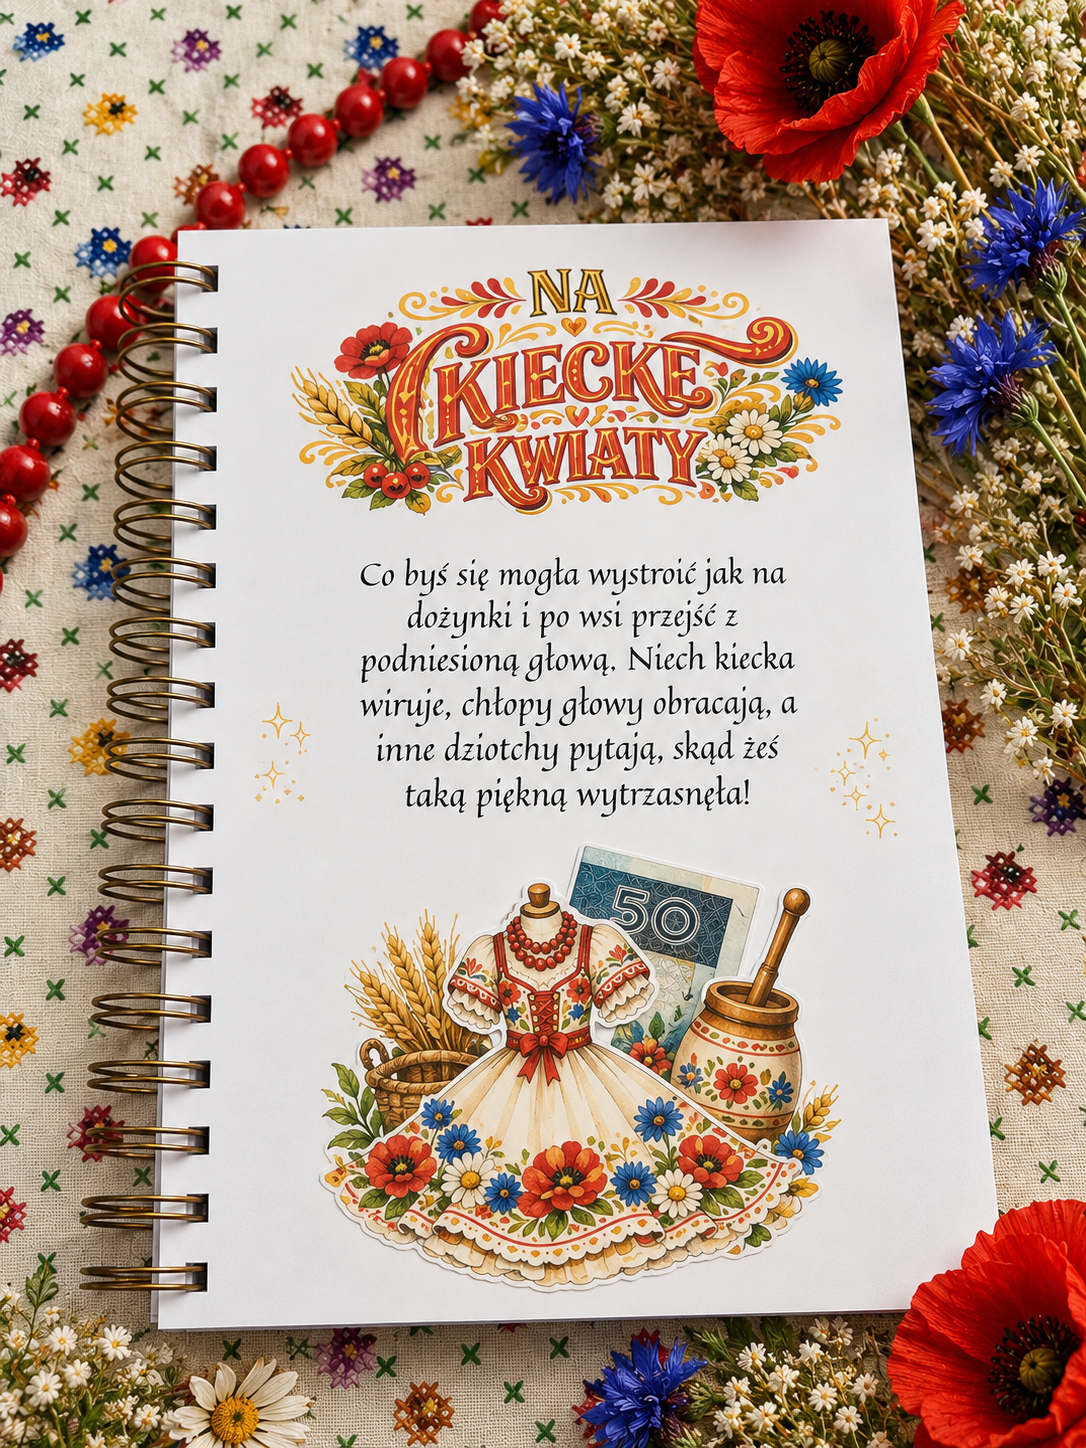 NA
KIECKE
KWIATY
Co byś się mogła wystroić jak na
dożynki i po wsi przejść z
podniesioną głową. Niech kiecka
wiruje, chłopy głowy obracają, a
inne dziotchy pytają, skąd żeś
taką piękną wytrzasnęła!
50